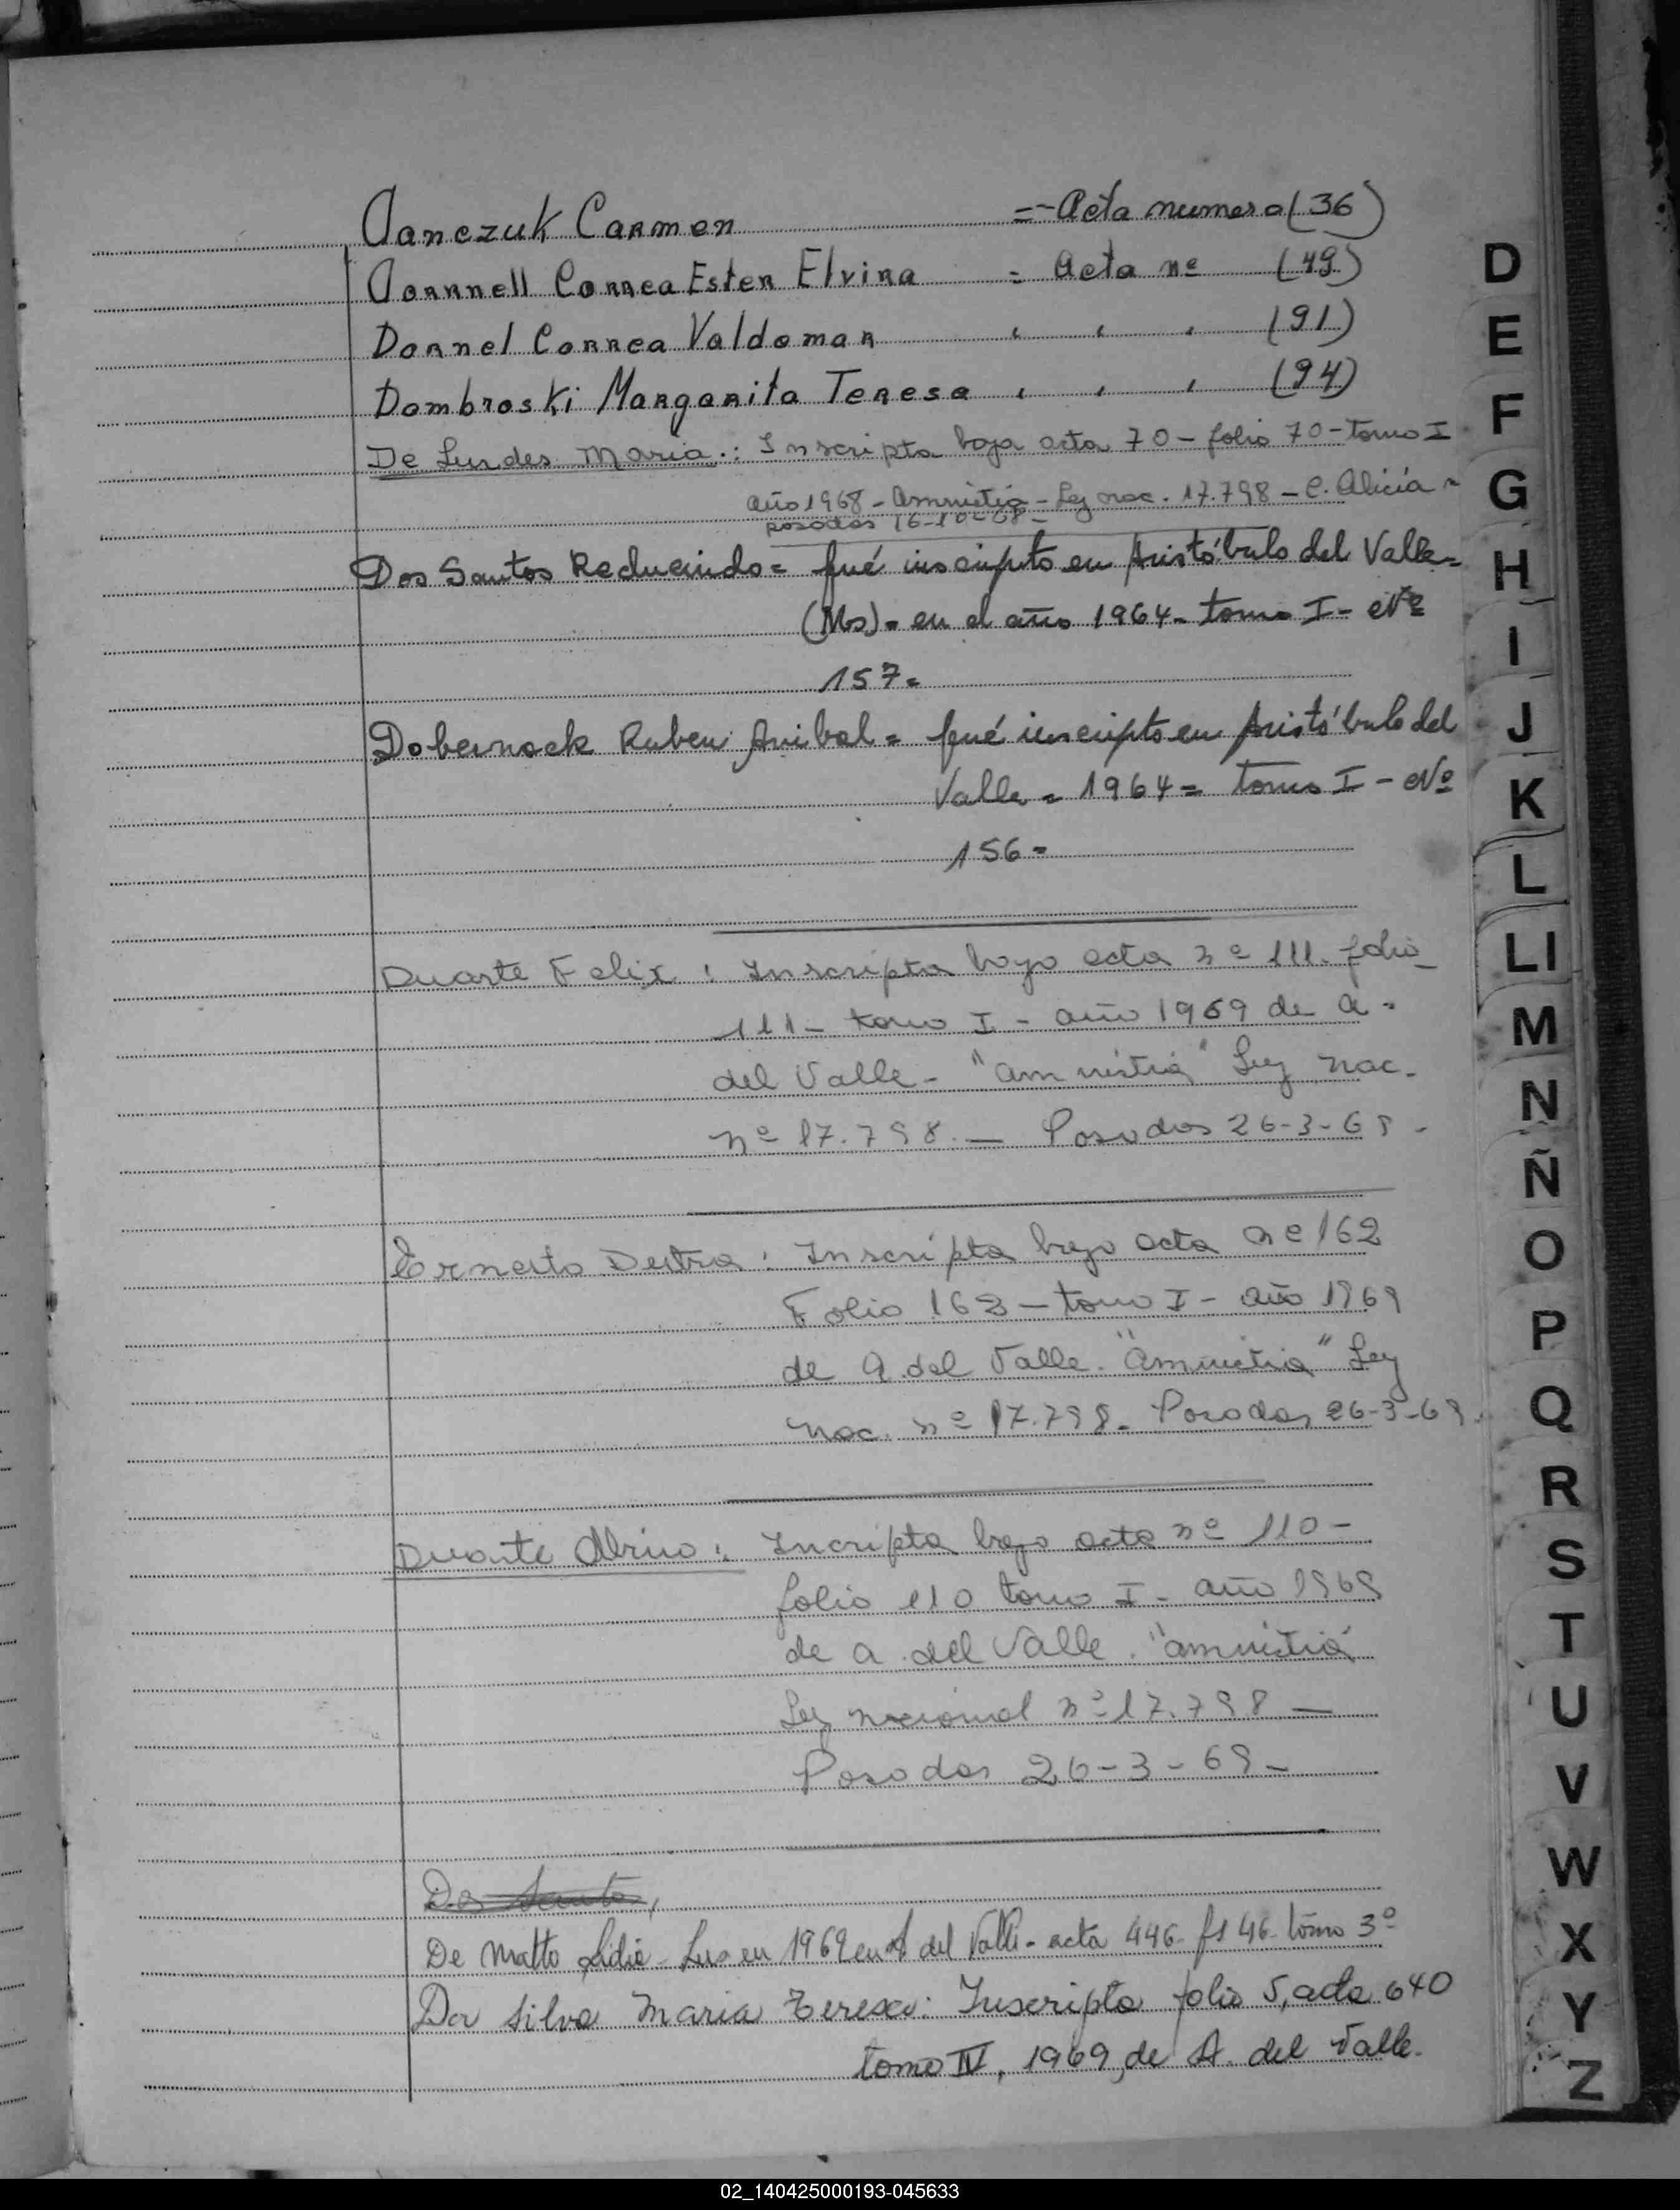 Danczuk Carmen =- Acta numero (36)
Dornnell Correa Ester Elvira = Acta nº (49)
Dornel Correa Valdomar " " " (91)
Dombroski Margarita Teresa " " " (94)
De Lurdes Maria.: Inscripta bajo acta 70 - folio 70 - tomo I
año 1968 - Amnistia - Ley nac. 17.798 - C. Alicia -
posadas 16-10-68 -
Dos Santos Reducindo = fué inscripto en Aristóbulo del Valle =
(Ms) = en el año 1964 - tomo I - Nº
157 =
Dobernack Ruben Anibal = fué inscripto en Aristóbulo del
Valle = 1964 = tomo I - Nº
156 =
Duarte Felix : Inscripta bajo acta nº 111. folio
111 - tomo I - año 1969 de A.
del Valle - "amnistia" Ley nac.
nº 17.798. — Posadas 26-3-69 -
Ernesto Dutra : Inscripta bajo acta nº 162
Folio 162 - tomo I - año 1969
de A. del Valle. "Amnistia" Ley
nac. nº 17.798 - Posadas 26-3-69.
Duarte Abrio : Incripta bajo acta nº 110 -
folio 110 tomo I - año 1969
de A. del Valle. "amnistia"
Ley nacional nº 17.798 —
Posadas 26-3-69 -
Dos Santos,
De Matto Lidia - Ins en 1969 en A del Valle - acta 446 - fs 46 - tomo 3º
Da Silva Maria Teresa: Inscripta folio 5, acta 640
tomo IV, 1969, de A. del Valle.
D
E
F
G
H
I
J
K
L
Ll
M
N
Ñ
O
P
Q
R
S
T
U
V
W
X
Y
Z
02_140425000193-045633